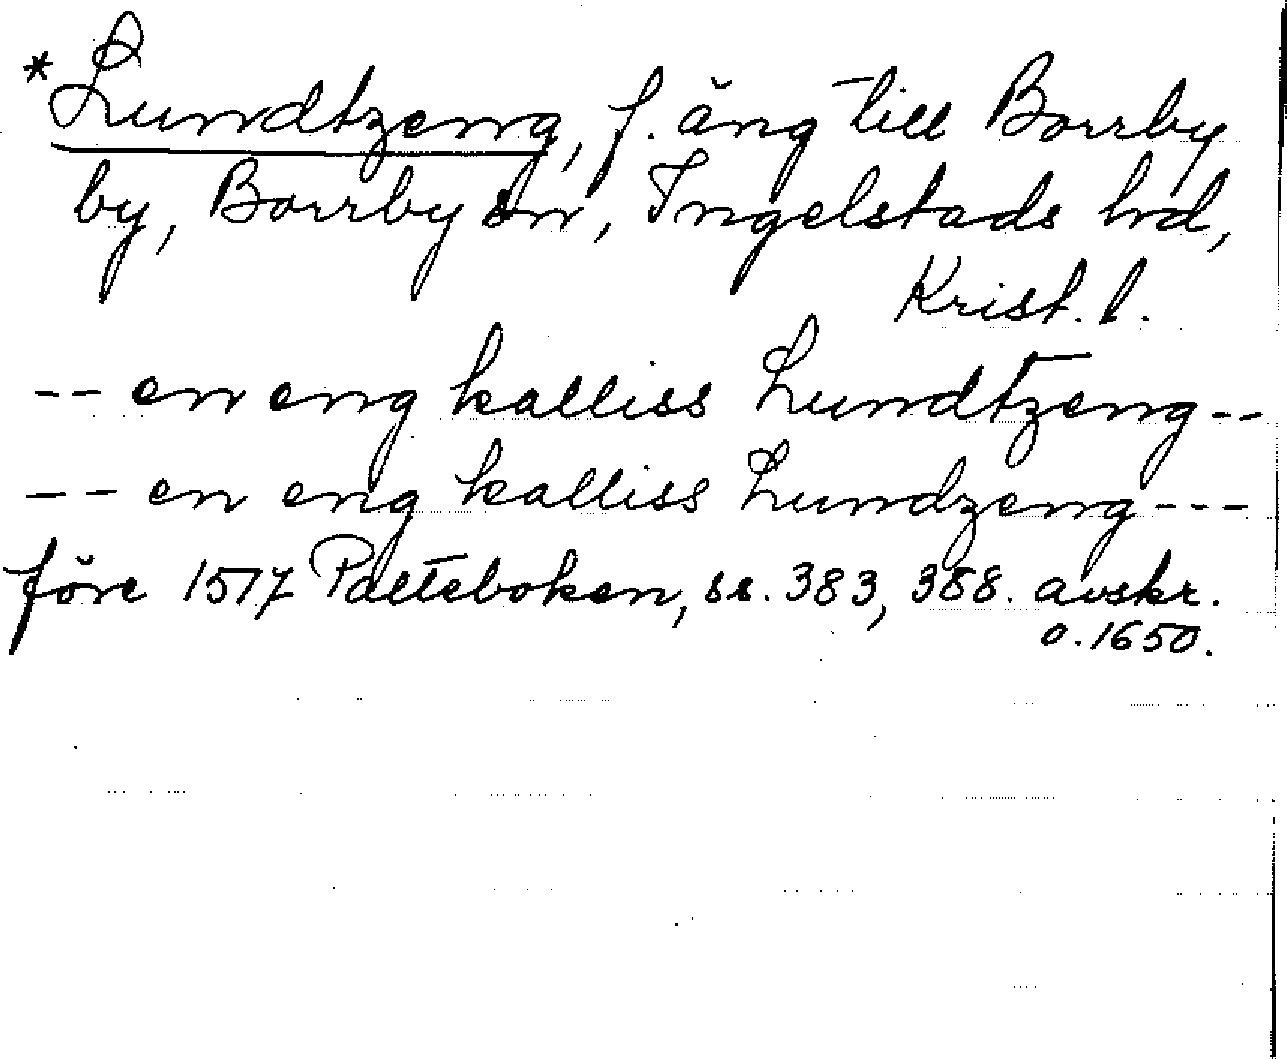 *Lundtzeng, f. äng till Borrby
by, Borrby sn, Ingelstads hd,
Krist. l.
-- en eng kalliss Lundtzeng--
-- en eng kalliss Lundzeng---
före 1517 Palteboken, ss. 383, 388. avskr.
o. 1650.